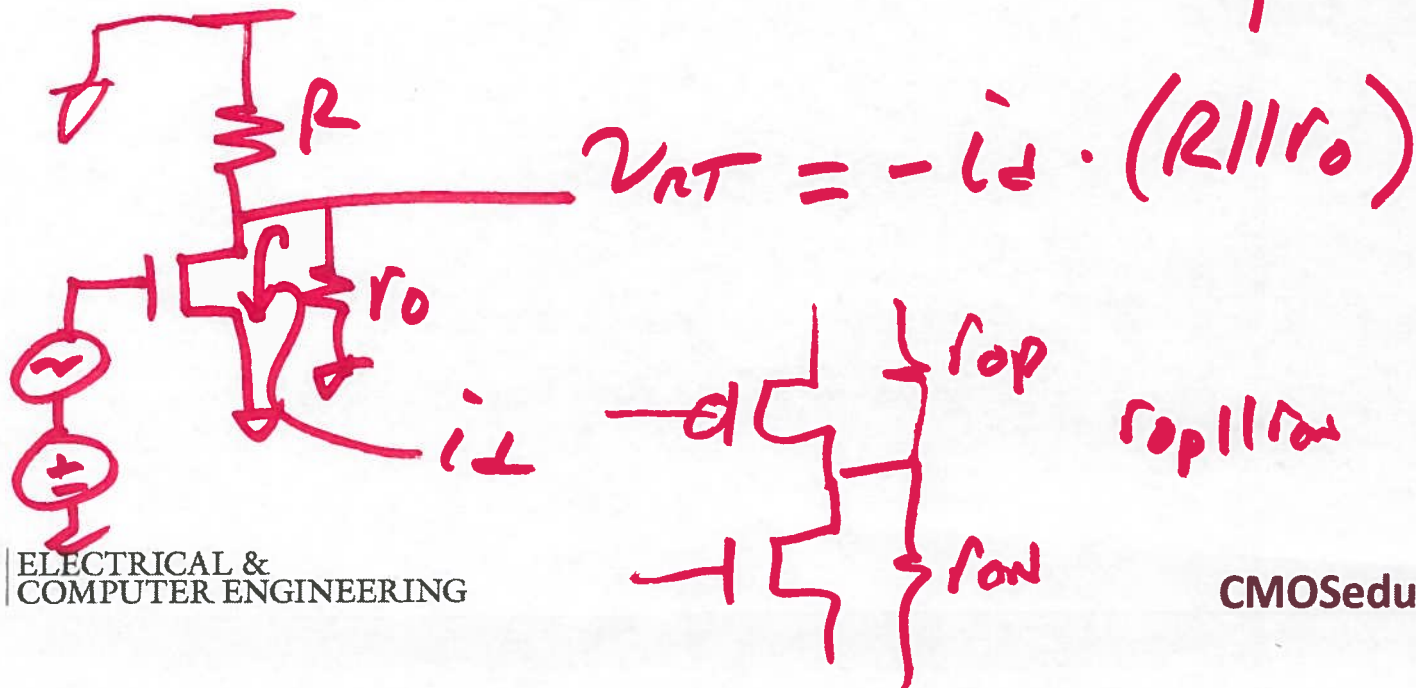 R
vₒᵤₜ = - i_d · (R||r₀)
r₀
i_d
rop
rop||ron
ron
ELECTRICAL &
COMPUTER ENGINEERING
CMOSedu